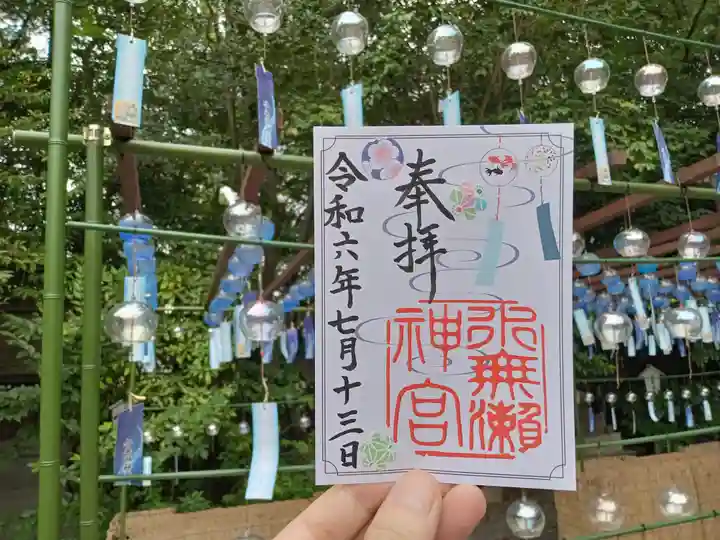 奉拝
水無瀬
神宮
令和六年七月十三日